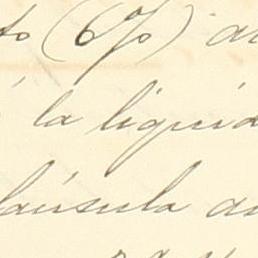 to (6%) a
á la liquid
laúsula a